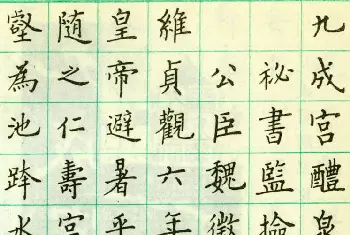 九成宫醴泉
秘書監撿
公臣魏徵
維貞觀六年
皇帝避暑乎
随之仁壽宫
壑為池跨水